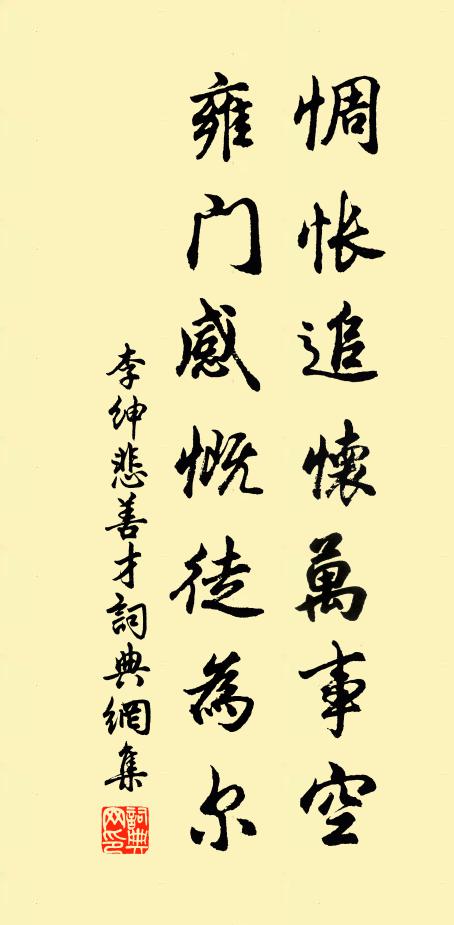 惆悵追懷萬事空
雍門感慨徒為尔
李紳悲善才詞典網集
詞典網印